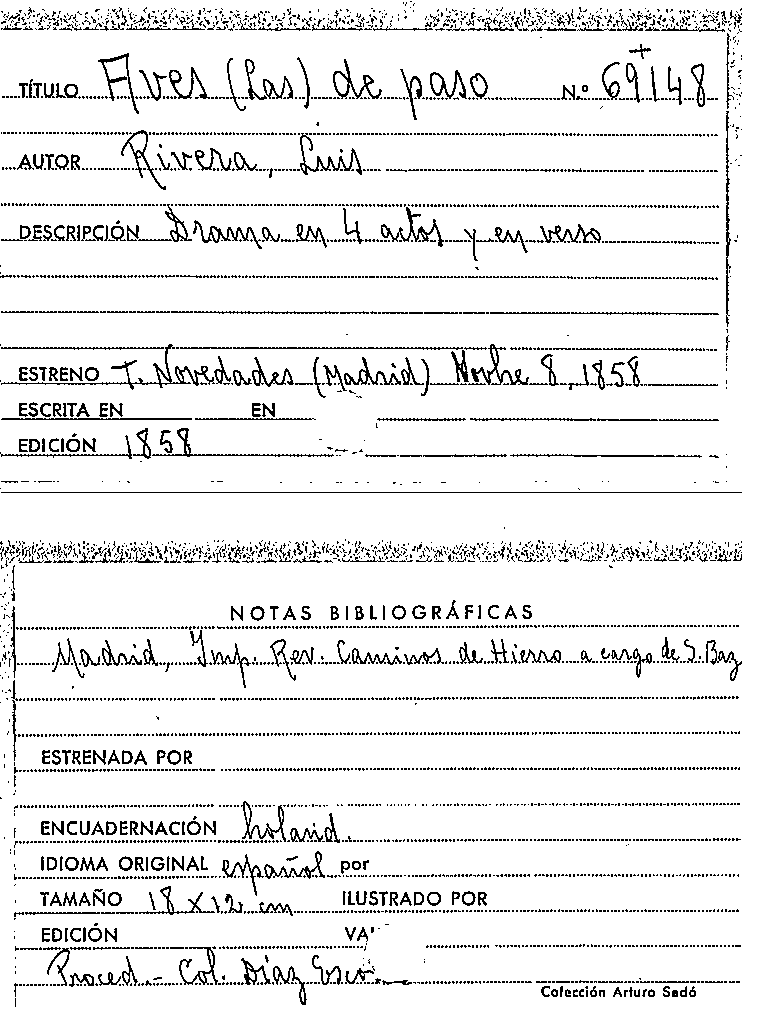 TÍTULO Aves (Las) de paso N.º 69148
AUTOR Rivera, Luis
DESCRIPCIÓN Drama en 4 actos y en verso
ESTRENO T. Novedades (Madrid) Novbre 8, 1858
ESCRITA EN EN
EDICIÓN 1858
NOTAS BIBLIOGRÁFICAS
Madrid, Imp. Rev. Caminos de Hierro a cargo de S. Baz
ESTRENADA POR
ENCUADERNACIÓN holand.
IDIOMA ORIGINAL español por
TAMAÑO 18 x 12 cm ILUSTRADO POR
EDICIÓN VA
Proced.- Col. Díaz Esco
Colección Arturo Sedó